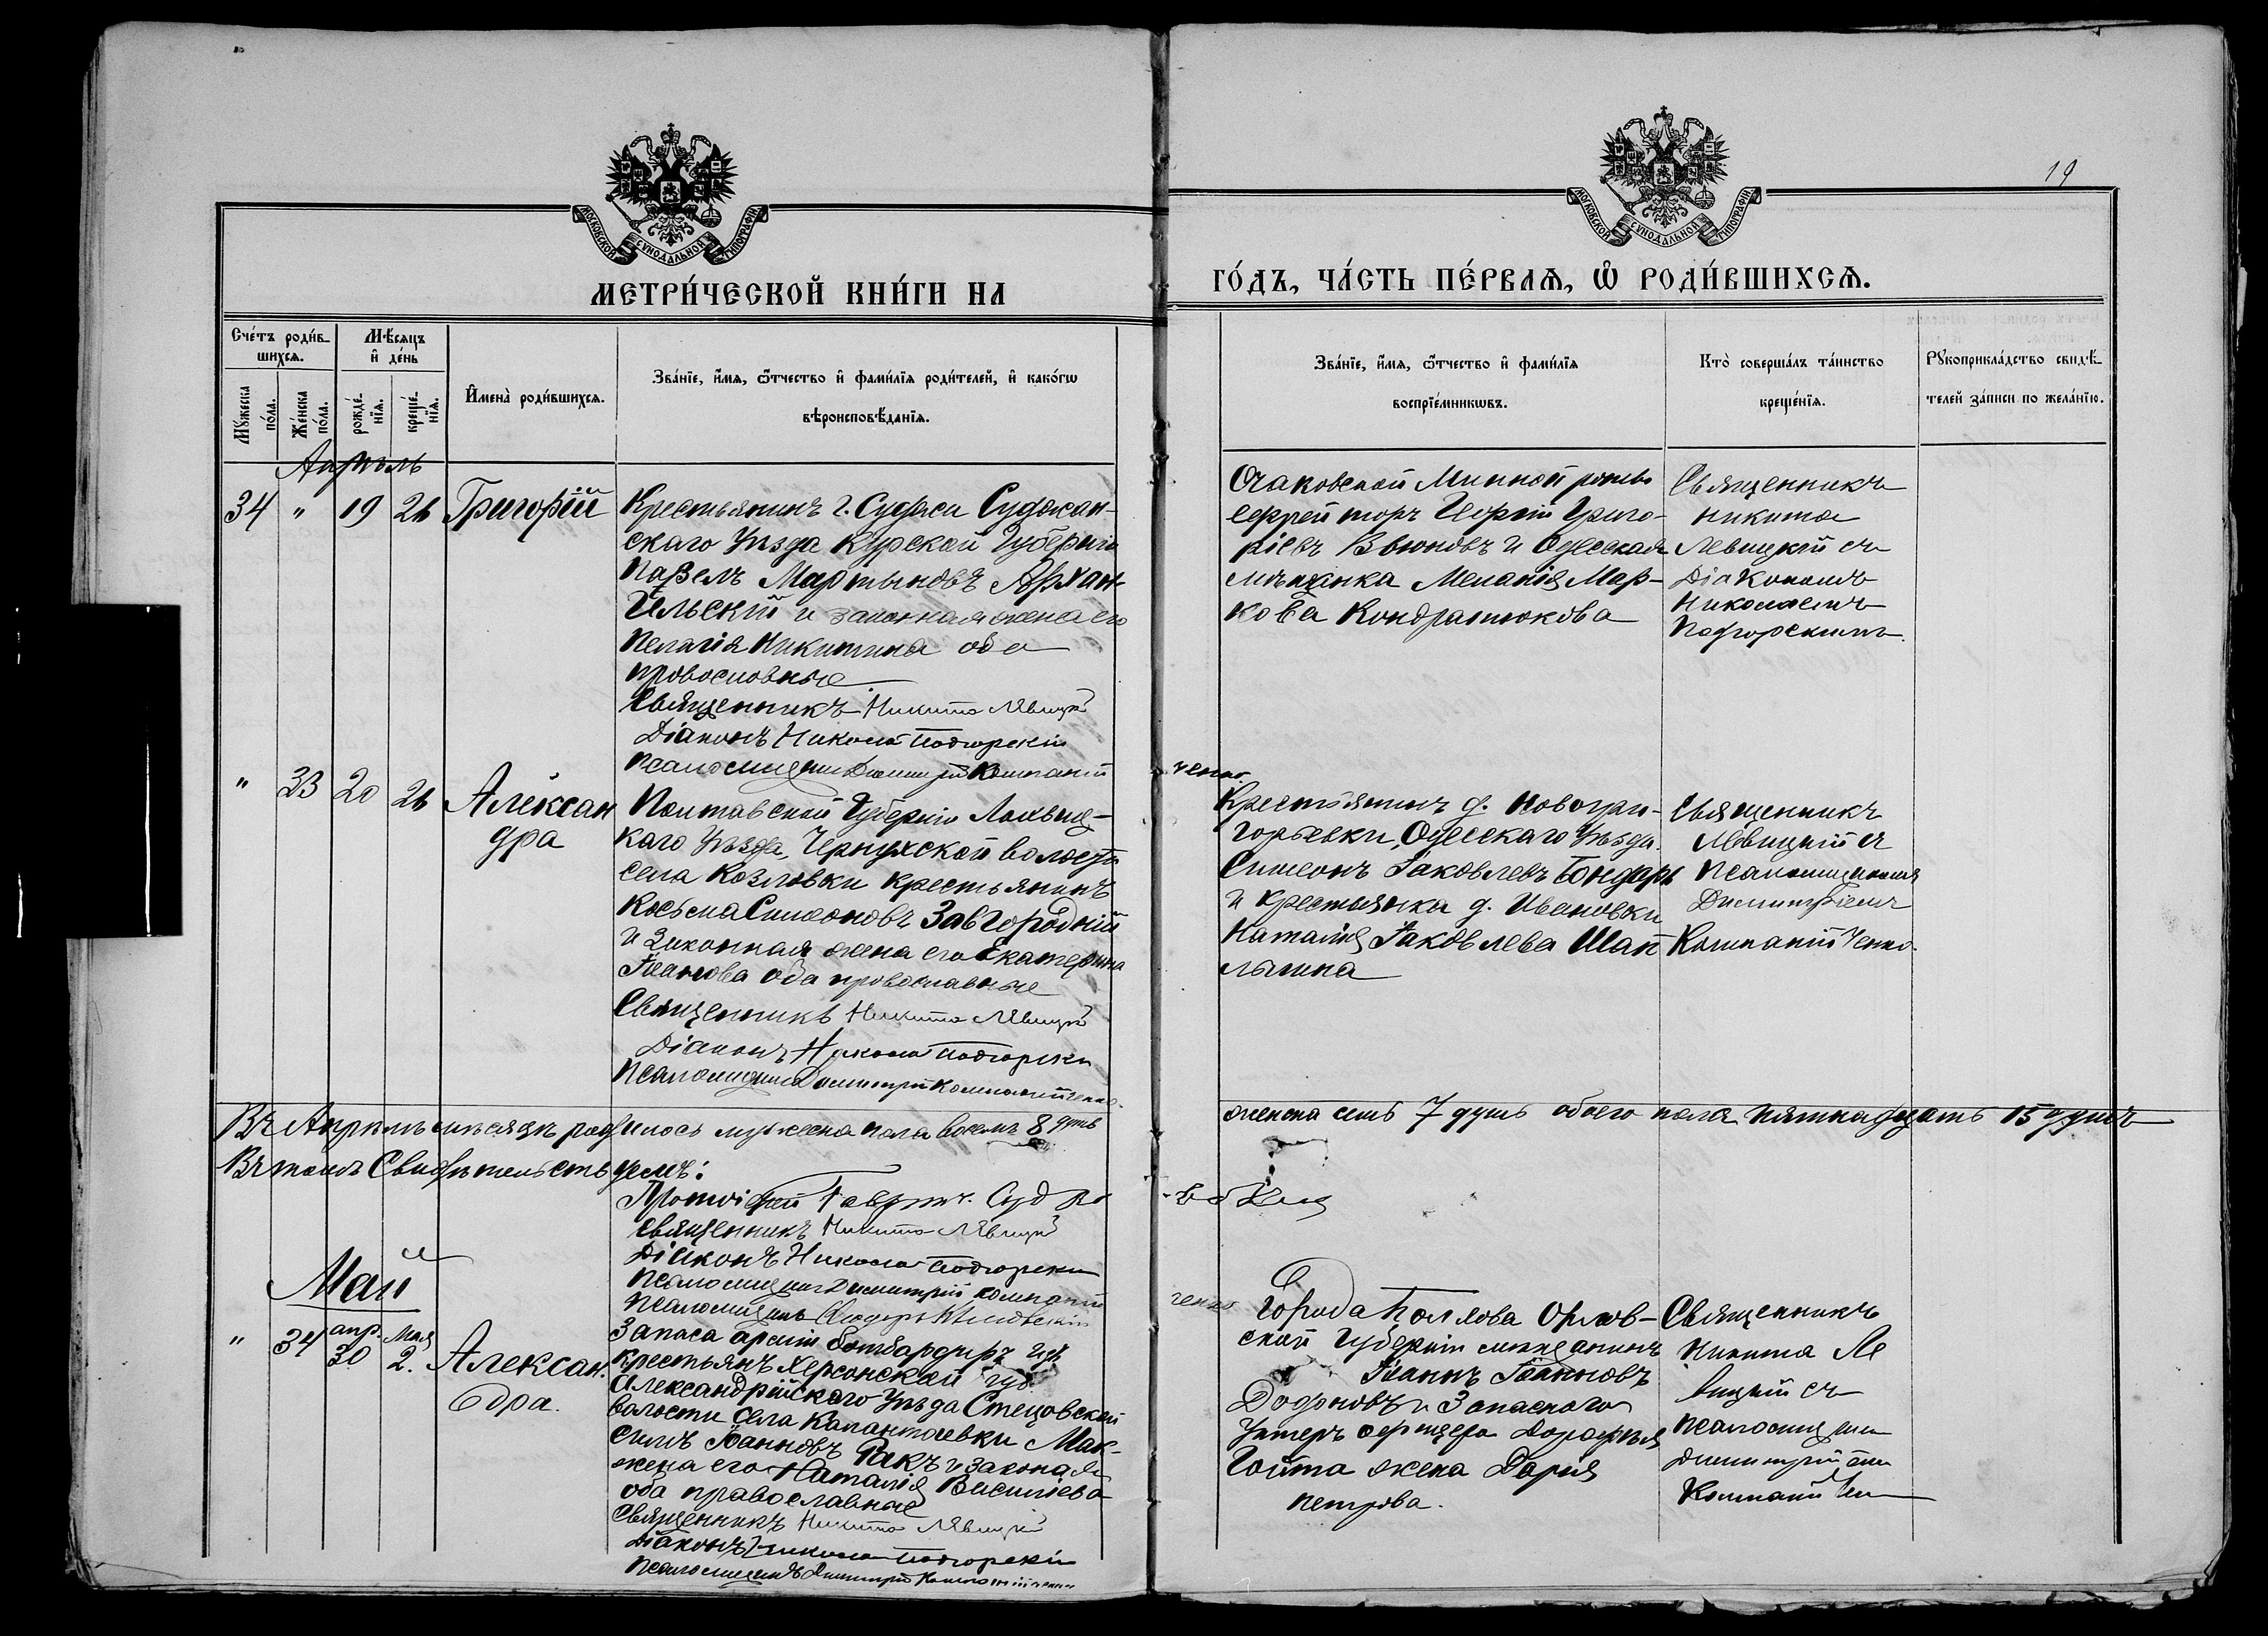 19
МОСКОВСКОЙ СУНОДАЛЬНОЙ ТИПОГРАФІИ.
МОСКОВСКОЙ СУНОДАЛЬНОЙ ТИПОГРАФІИ.
МЕТРИ́ЧЕСКОЙ КНИ́ГИ НА
ГО́ДЪ, ЧА́СТЬ ПЕ́РВАѦ, Ѽ РОДИ́ВШИХСѦ.
Сче́тъ роди́в-
шихсѧ.
Мѣ́сѧцъ
и҆ де́нь
Мꙋжеска
по́ла.
Же́нска
по́ла.
рожде́-
нїѧ.
креще́-
нїѧ.
И҆мена̀ роди́вшихсѧ.
Зва́нїе, и҆́мѧ, ѻ҆́тчество и҆ фами́лїѧ роди́телей, и҆ како́гѡ
вѣроисповѣ́данїѧ.
Зва́нїе, и҆́мѧ, ѻ҆́тчество и҆ фами́лїѧ
воспрїе́мникѡвъ.
Кто̀ соверша́лъ та́инство
креще́нїѧ.
Рꙋкоприкла́дство свидѣ́-
телей за́писи по жела́нїю.
Апрѣль
34 " 19 26 Григорій
Крестьянинъ г. Суджи Суджан-
скаго Уѣзда Курской Губерніи
Павелъ Мартыновъ Архан-
гельскій и законная жена его
Пелагія Никитина оба
православные
Священникъ Никита Левицкій
Діаконъ Николай Подгорскій
Псаломщикъ Димитрій Компаній
ченко.
Очаковской Минной роты
Ефрейторъ Георгій Григо-
ріевъ Вьюновъ и Одесская
мѣщанка Меланія Мар-
кова Кондратюкова
Священникъ
Никита
Левицкій съ
Діакономъ
Николаемъ
Подгорскимъ.
" 33 20 26 Алексан
дра
Полтавской Губерніи Лохвиц-
каго Уѣзда, Чернухской волости
Села Козловки крестьянинъ
Косьма Симеоновъ Завгородній
и Законная жена его Екатерина
Іванова оба православные
Священникъ Никита Левицкій
Діаконъ Николай Подгорскій
Псаломщикъ Димитрій Компанійченко.
Крестьянинъ д. Новогри-
горьевки, Одесскаго Уѣзда.
Симеонъ Іаковлевъ Бондарь
и крестьянка д. Ивановки
Наталія Іаковлева Шап
лыгина
Священникъ
Левицкій съ
Псаломщикомъ
Димитріемъ
Компанійченко.
Въ Апрѣлѣ мѣсяцѣ родилось мужеска пола восемь 8 душъ
женска семь 7 душъ обоего пола пятнадцать 15 душъ
Въ томъ Свидѣтельствуемъ:
Протоіерей Гавріилъ
Священникъ Никита Левицкій
Діаконъ Николай Подгорскій
Псаломщикъ Димитрій Компаній
ченко
Псаломщикъ
Май
" 34 апр. 30 Мая 2. Алексан.
дра.
Запаса арміи бомбардиръ
крестьянъ Херсонской губ.
Александрійскаго Уѣзда Стецовской
волости Села Капантаевки Мак-
симъ Іоанновъ Ракъ и законая
жена его Наталія Василіева
оба православные
Священникъ Никита Левицкій
Діаконъ Николай Подгорскій
Псаломщикъ Димитрій Компанійченко
Города Болхова Орлов-
ской Губерніи мѣщанинъ
Іоаннъ Іоанновъ
и Запаснаго
Унтеръ офицера Дорофея
Гойта жена Дарія
Петрова.
Священникъ
Никита Ле
вицкій съ
Псаломщикомъ
Димитріемъ
Компаній чен